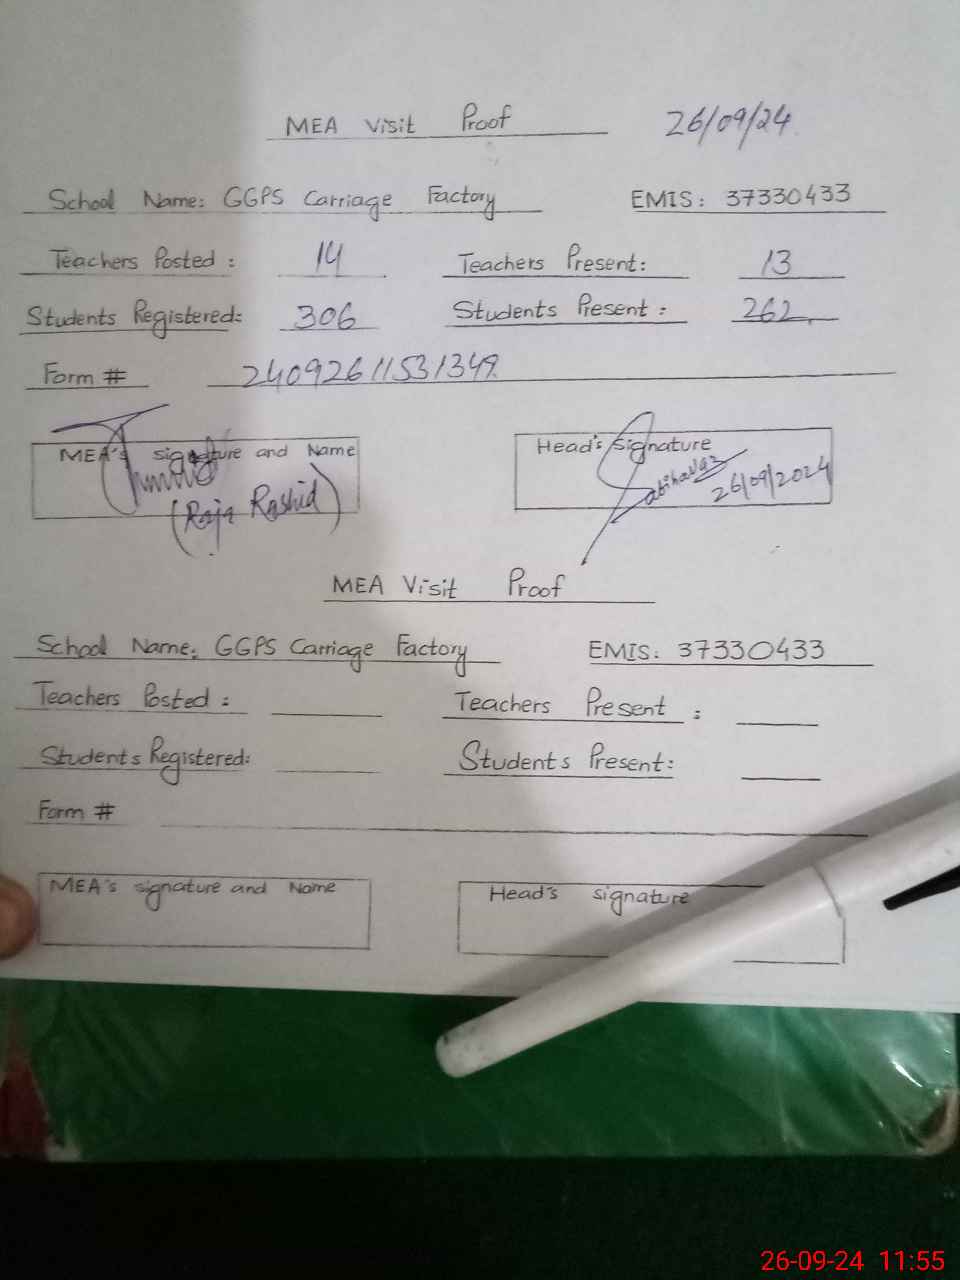 MEA Visit Proof 26/09/24
School Name: GGPS Carriage Factory EMIS: 37330433
Teachers Posted: 14 Teachers Present: 13
Students Registered: 306 Students Present: 262
Form # 24092611531349
MEA's signature and Name Head's signature
(Raja Rashid) 26/09/2024
MEA Visit Proof
School Name: GGPS Carriage Factory EMIS: 37330433
Teachers Posted: Teachers Present:
Students Registered: Students Present:
Form #
MEA's signature and Name Head's signature
26-09-24 11:55